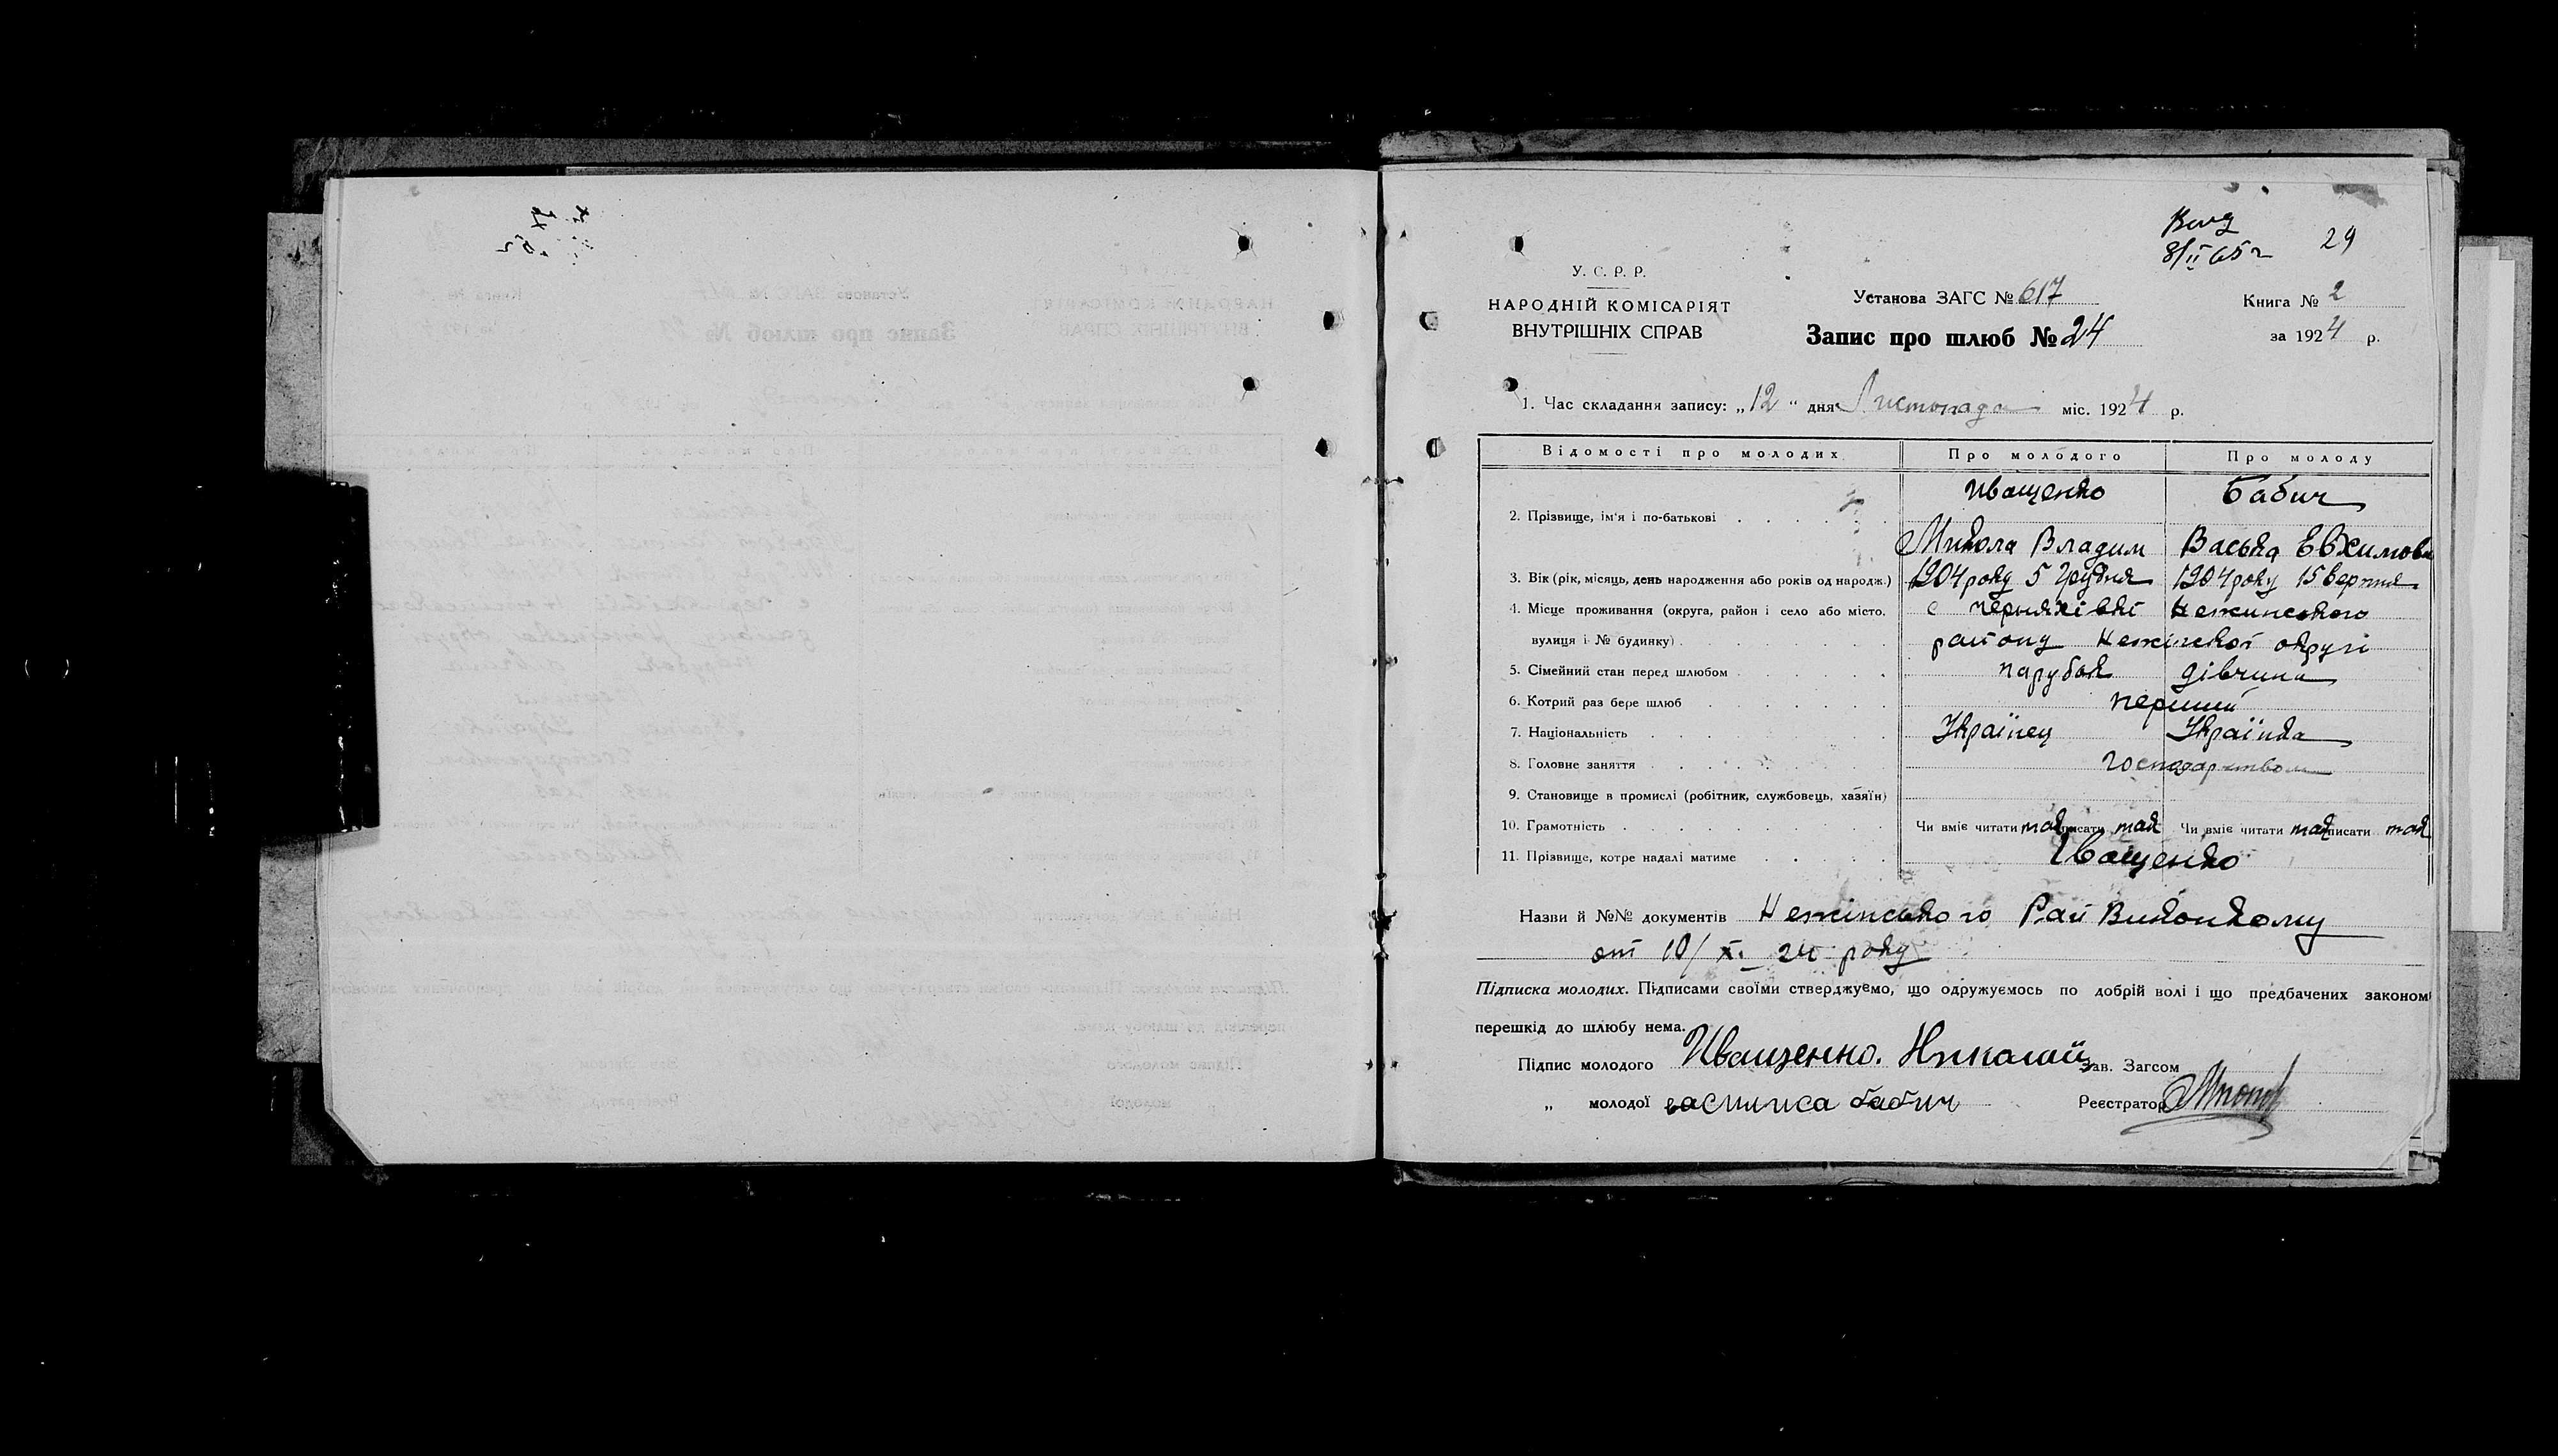 8/II 65 г
29
У. С. Р. Р.
НАРОДНІЙ КОМІСАРІЯТ
ВНУТРІШНІХ СПРАВ
Установа ЗАГС № 617
Запис про шлюб № 24
Книга № 2
за 1924 р.
1. Час складання запису: „12“ дня Листопада міс. 1924 р.
Відомості про молодих Про молодого Про молоду
Иващенко Бабич
2. Прізвище, ім'я і по-батькові
Микола Владим Васька Евхимовн
3. Вік (рік, місяць, день народження або років од народж.) 1904 року 5 Грудня 1904 року 15 Вертня
4. Місце проживання (округа, район і село або місто, с Черняхівкі Нежинського
вулиця і № будинку) району Нежінскої округі
5. Сімейний стан перед шлюбом парубок дівчина
6. Котрий раз бере шлюб перший
7. Національність Українец Українка
8. Головне заняття господарством
9. Становище в промислі (робітник, службовець, хазяїн)
10. Грамотність Чи вміє читати так писати так Чи вміє читати так писати так
11. Прізвище, котре надалі матиме Іващенко
Назви й №№ документів Нежінського Рай Виконкому
от 10/X. 24 року
Підписка молодих. Підписами своїми стверджуємо, що одружуємось по добрій волі і що предбачених законом
перешкід до шлюбу нема.
Підпис молодого Иващенко. Николай Зав. Загсом
„ молодої бабич Реєстратор